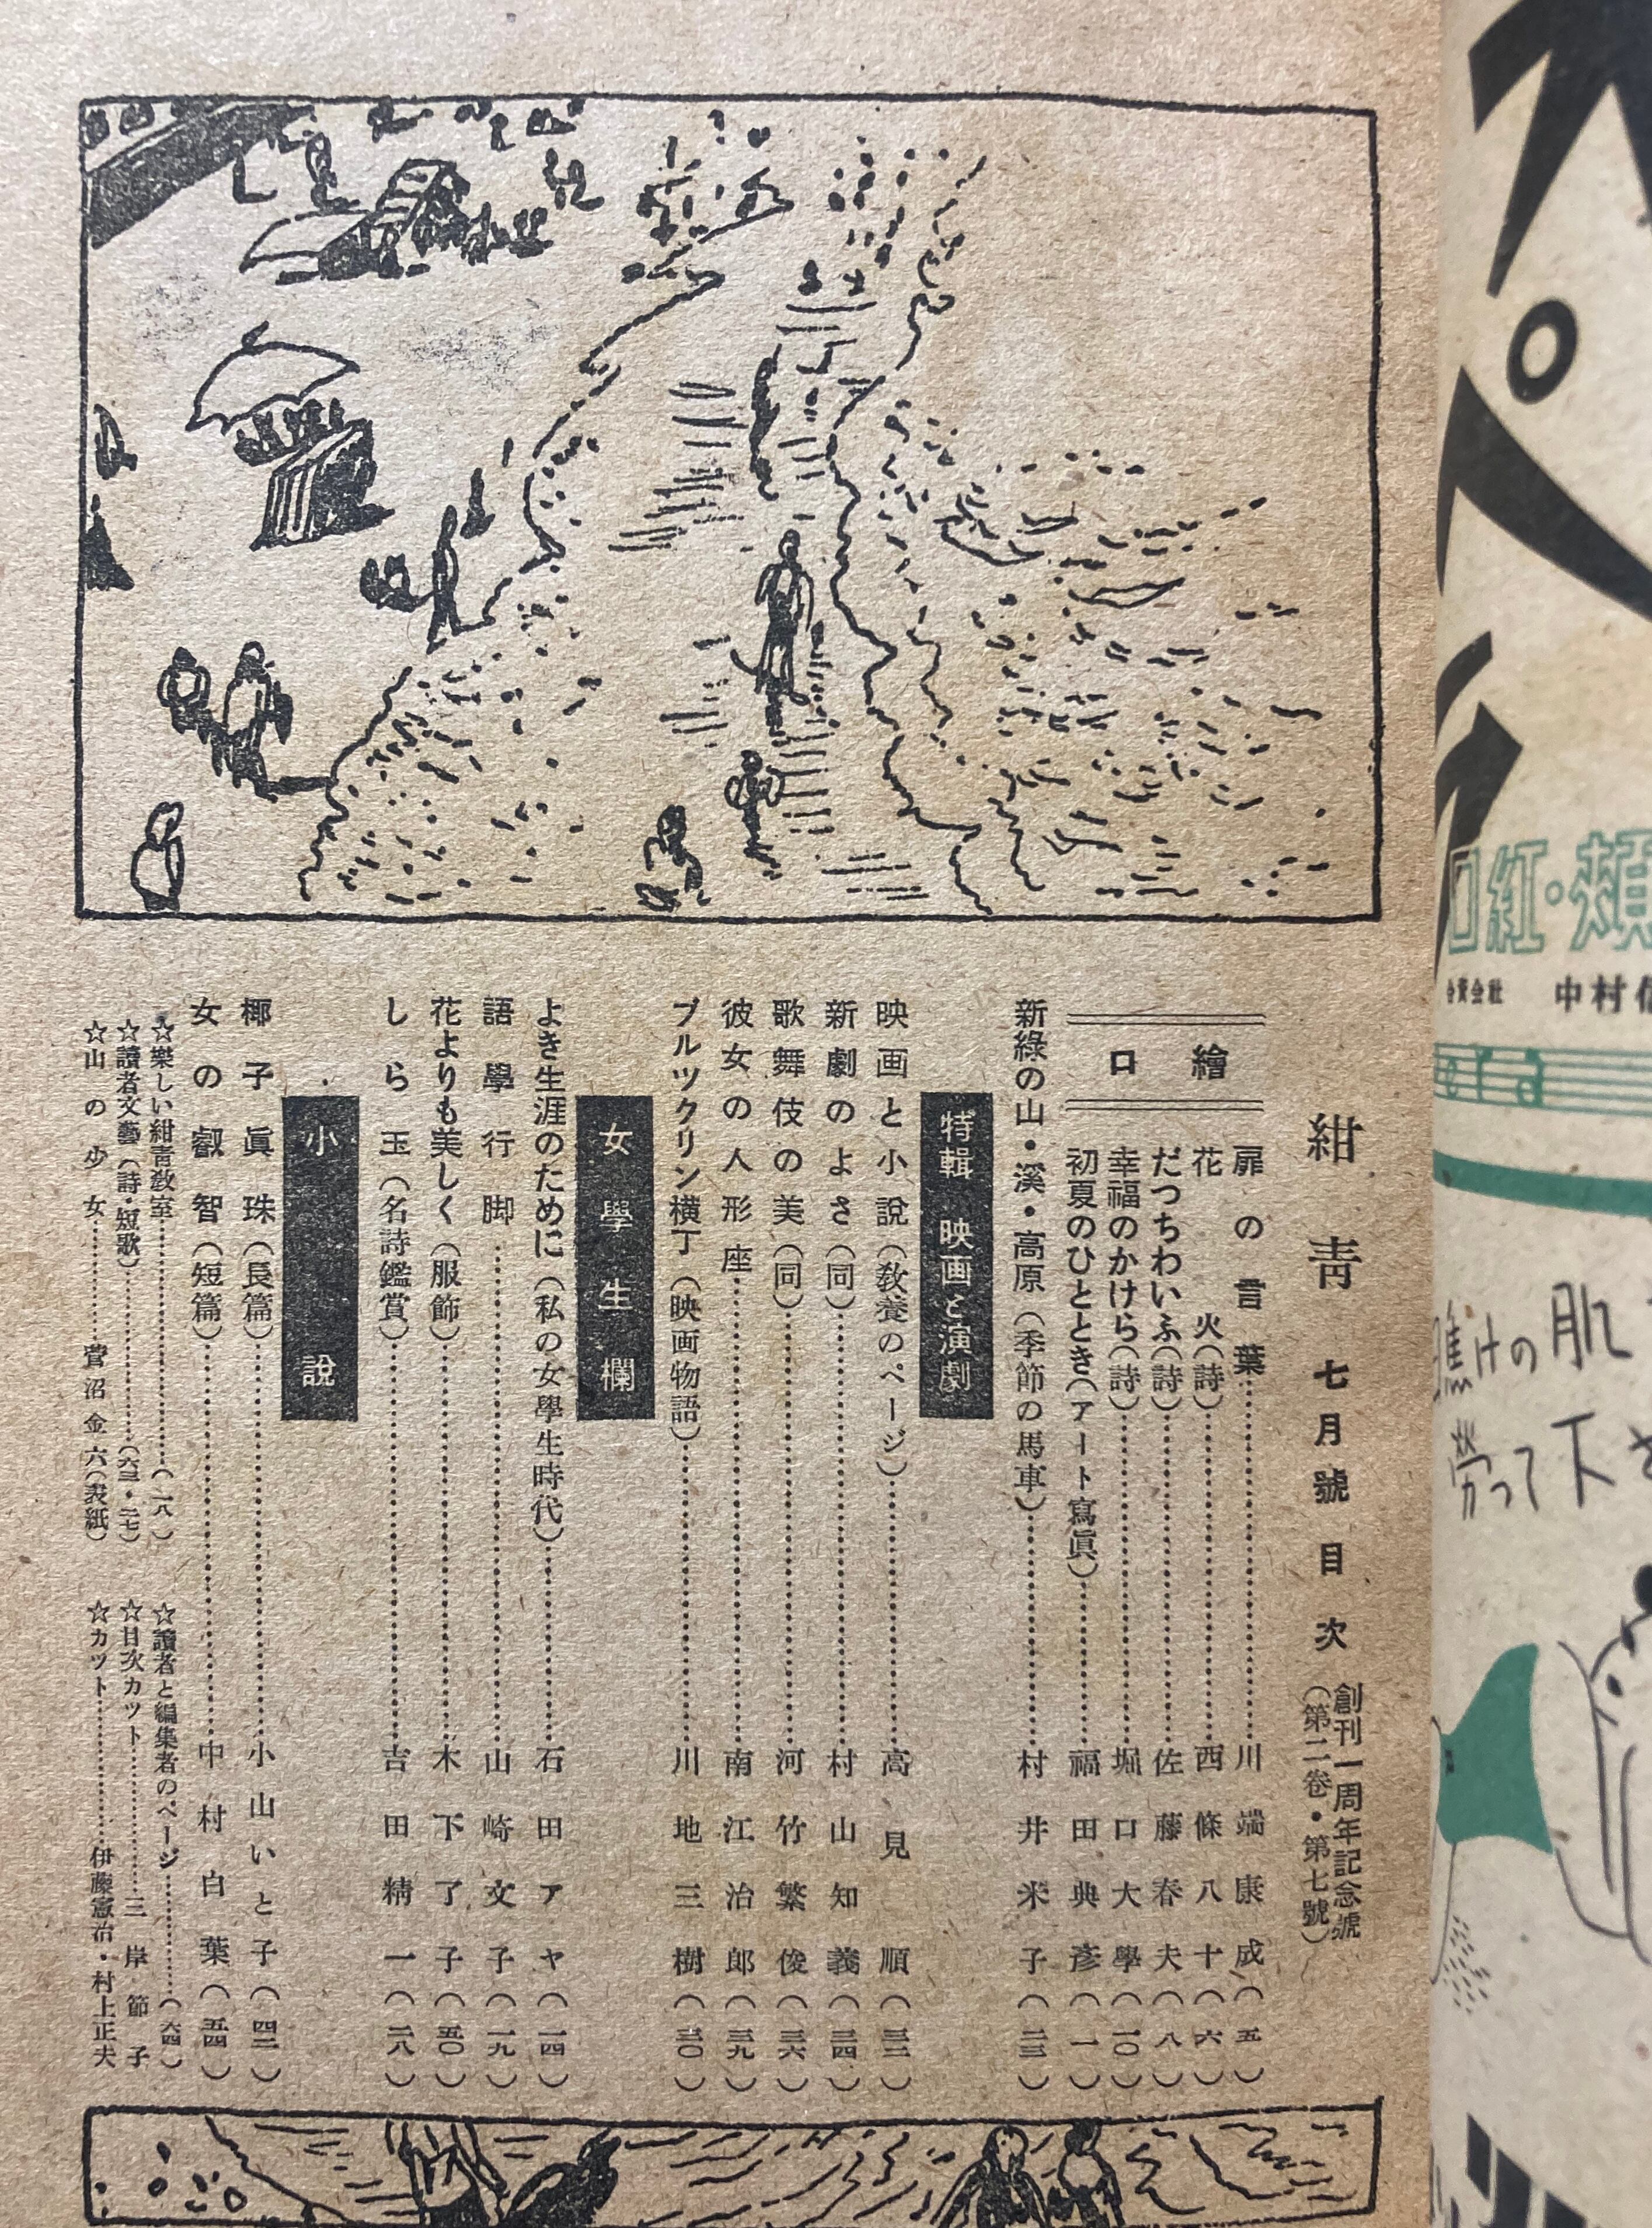 紺靑 七月號目次
創刊一周年記念號
(第二卷・第七號)
扉の言葉……川端康成(五)
繪
口
花火(詩)……西條八十(六)
だつちわいふ(詩)……佐藤春夫(八)
幸福のかけら(詩)……堀口大學(一〇)
初夏のひととき(アート寫眞)……福田典彥(一)
新綠の山・溪・高原(季節の馬車)……村井米子(二三)
特輯 映画と演劇
映画と小說(敎養のページ)……高見順(三二)
新劇のよさ(同)……村山知義(三四)
歌舞伎の美(同)……河竹繁俊(三六)
彼女の人形座……南江治郎(三九)
ブルツクリン横丁(映画物語)……川地三樹(三〇)
女學生欄
よき生涯のために(私の女學生時代)……石田アヤ(一四)
語學行脚……山崎文子(一九)
花よりも美しく(服飾)……木下了子(五〇)
しら玉(名詩鑑賞)……吉田精一(二八)
小說
椰子眞珠(長篇)……小山いと子(四二)
女の叡智(短篇)……中村白葉(五四)
☆樂しい紺靑敎室……(一八)
☆讀者文藝(詩・短歌)……(六三・二七)
☆山の少女……菅沼金六(表紙)
☆讀者と編集者のページ……(六四)
☆目次カツト……三岸節子
☆カツト……伊藤憲治・村上正夫
口紅・頰
合資会社 中村信
肌
勞って下さ